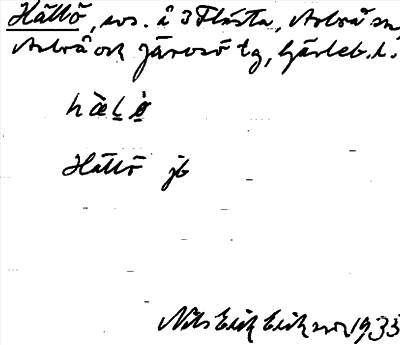 Hällö, avs. å 3 Flästa, Arbrå sn,
Arbrå och Järvsö tg, Gävleb. l.
Hällö jb
Nils Erik Eriksson 1933